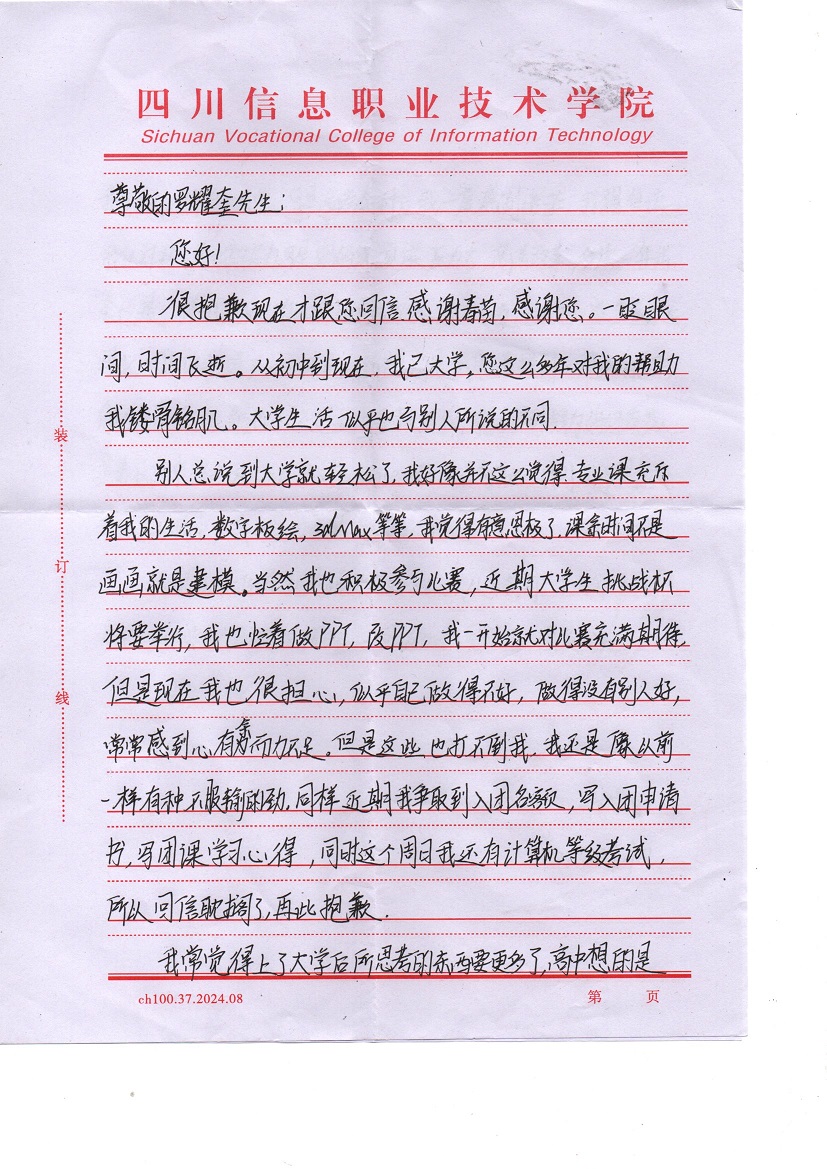 四川信息职业技术学院
Sichuan Vocational College of Information Technology
尊敬的罗耀奎先生:
您好!
很抱歉现在才跟您回信,感谢春苗,感谢您。一眨眼
间,时间飞逝。从初中到现在,我已大学,您这么多年对我的帮助
我镂骨铭肌。大学生活似乎也与别人所说的不同.
别人总说到大学就轻松了,我好像并不这么觉得.专业课充斥
着我的生活,数字板绘,3dMax等等,我觉得有意思极了.课余时间不是
画画就是建模。当然我也积极参与比赛,近期大学生挑战杯
将要举行,我也忙着做PPT,改PPT,我一开始就对比赛充满期待,
但是现在我也很担心,似乎自己做得不好,做得没有别人好,
常常感到心有余而力不足。但是这些也打不倒我,我还是像以前
一样有种不服输的劲,同样近期我争取到入团名额,写入团申请
书,写团课学习心得,同时这个周日我还有计算机等级考试,
所以回信耽搁了,再此抱歉.
我常觉得上了大学后所思考的东西要更多了,高中想的是
装
订
线
ch100.37.2024.08
第 页